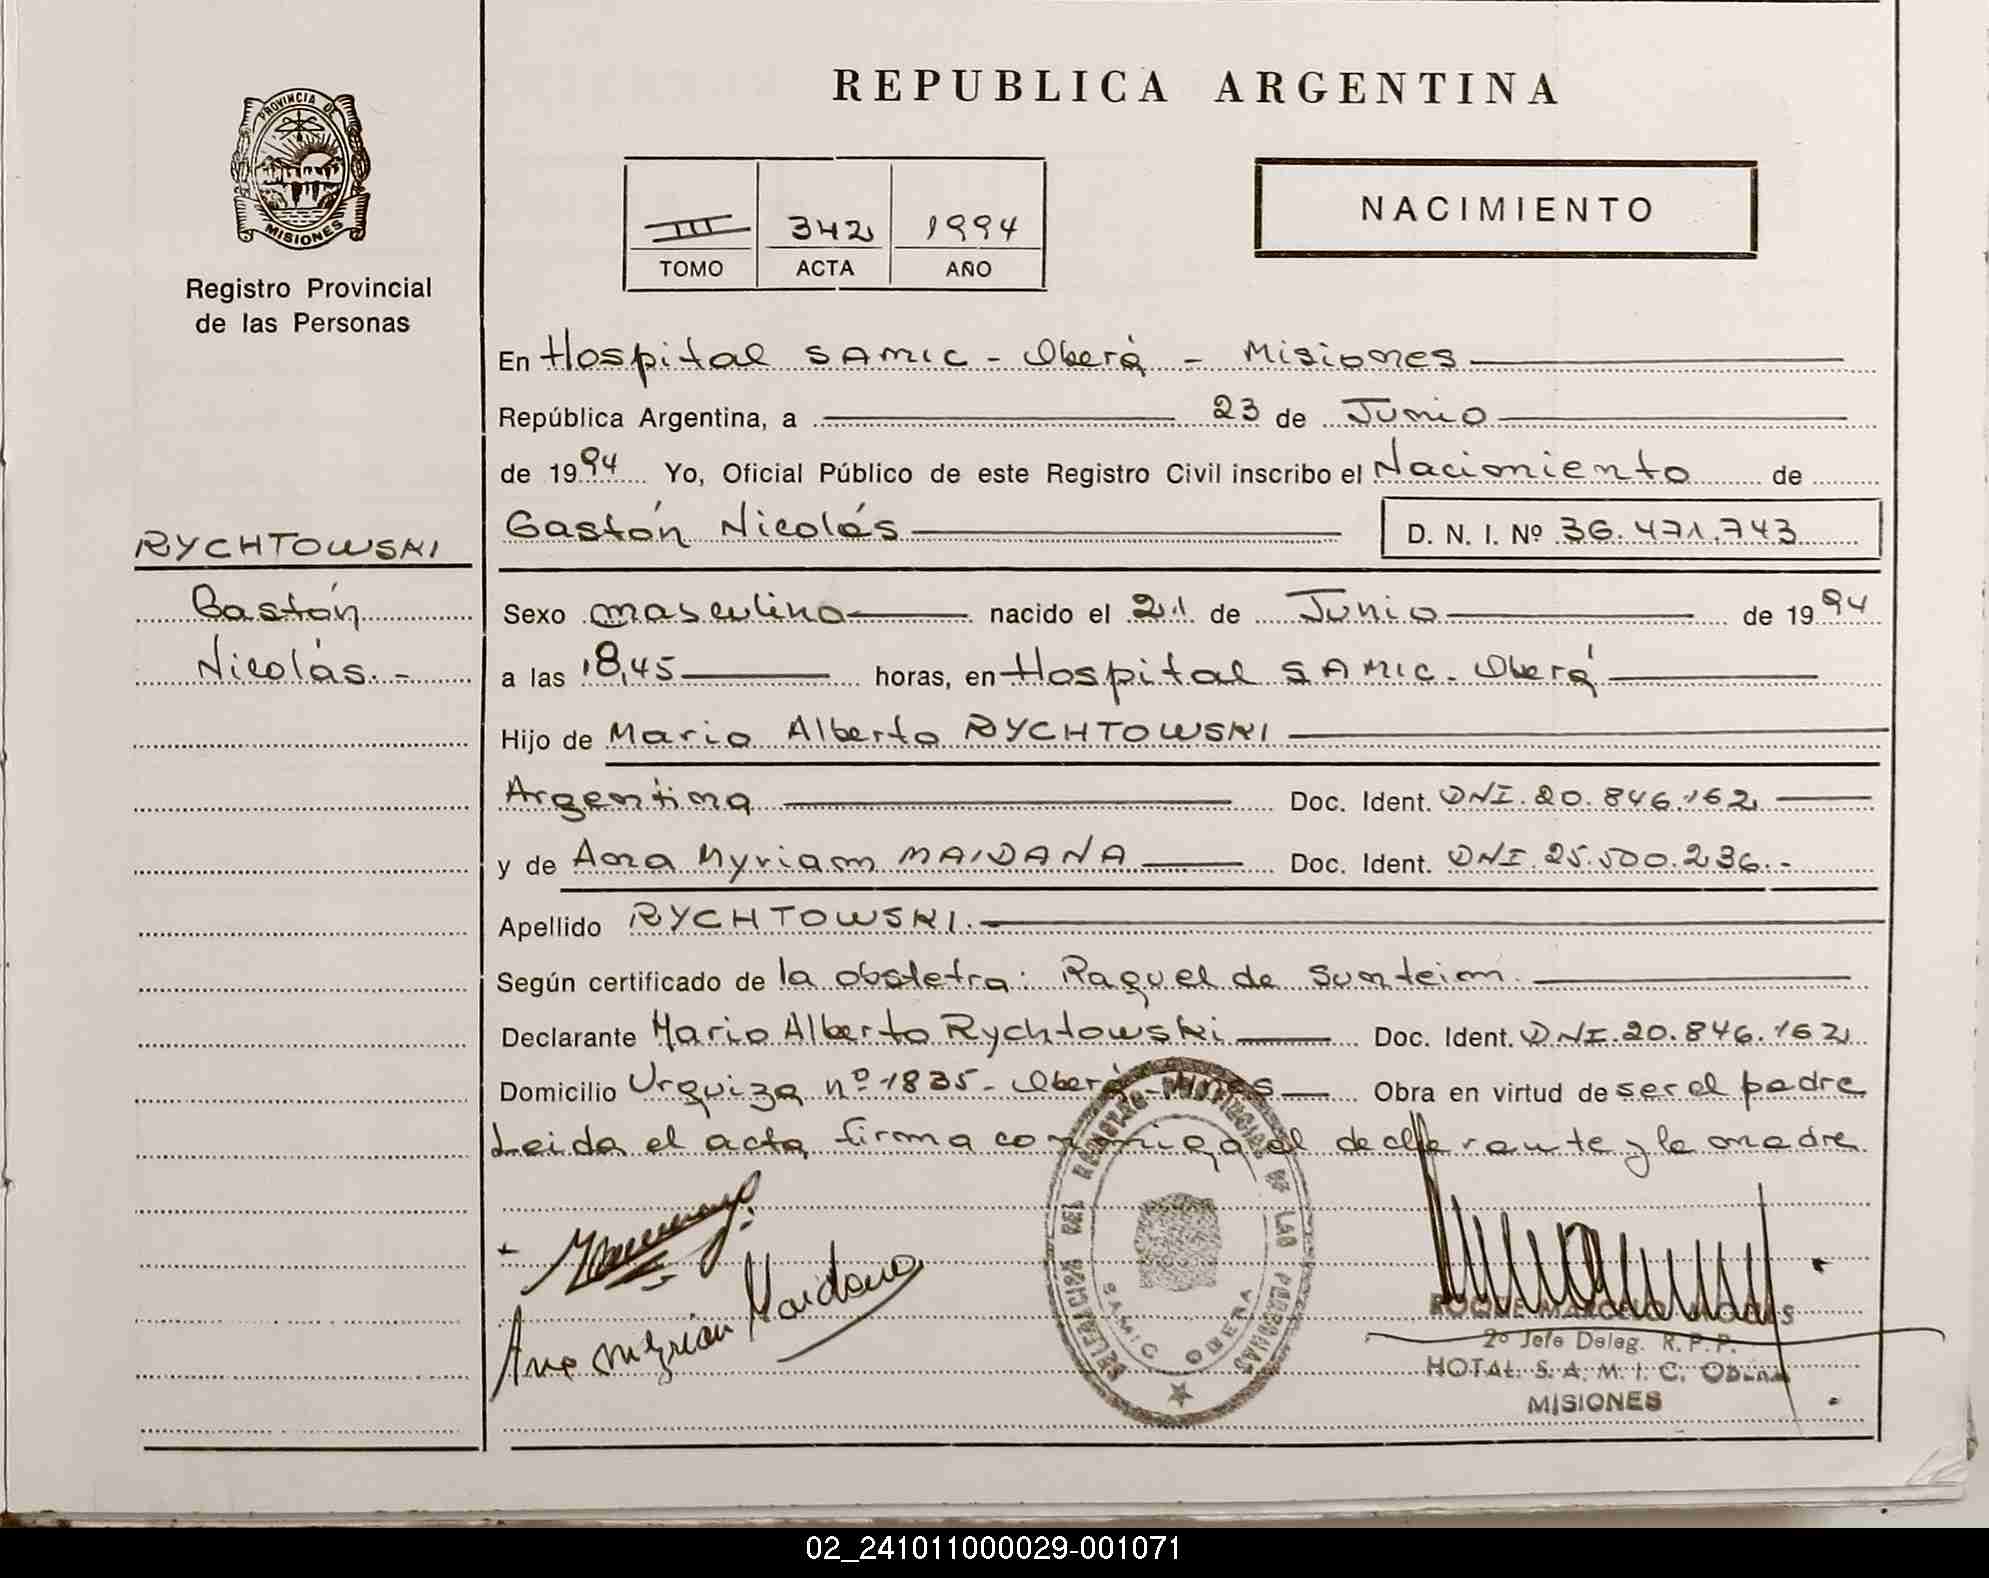 REPUBLICA ARGENTINA
PROVINCIA DE
MISIONES
Registro Provincial
de las Personas
III 342 1994
TOMO ACTA AÑO
NACIMIENTO
En Hospital SAMIC - Oberá - Misiones
República Argentina, a 23 de Junio
de 1994 Yo, Oficial Público de este Registro Civil inscribo el Nacimiento de
Gastón Nicolás D. N. I. Nº 36.471.743
RYCHTOWSKI
Gastón
Nicolás.-
Sexo masculino nacido el 21 de Junio de 1994
a las 18,45 horas, en Hospital SAMIC - Oberá
Hijo de Mario Alberto RYCHTOWSKI
Argentina Doc. Ident. DNI. 20.846.162
y de Ana Myriam MAIDANA Doc. Ident. DNI. 25.500.236.-
Apellido RYCHTOWSKI.
Según certificado de la obstetra: Raquel de Sunteim.
Declarante Mario Alberto Rychtowski Doc. Ident. DNI. 20.846.162
Domicilio Urquiza nº 1835 - Oberá - Mnes Obra en virtud de ser el padre
Leida el acta firma conmigo el declarante y la madre
Ana Myrian Maidana
DELEGACION DEL REGISTRO PROVINCIAL DE LAS PERSONAS
SAMIC OBERA
ROQUE
2º Jefe Deleg. R.P.P.
HOTAL S. A. M. I. C. OBERA
MISIONES
02_241011000029-001071